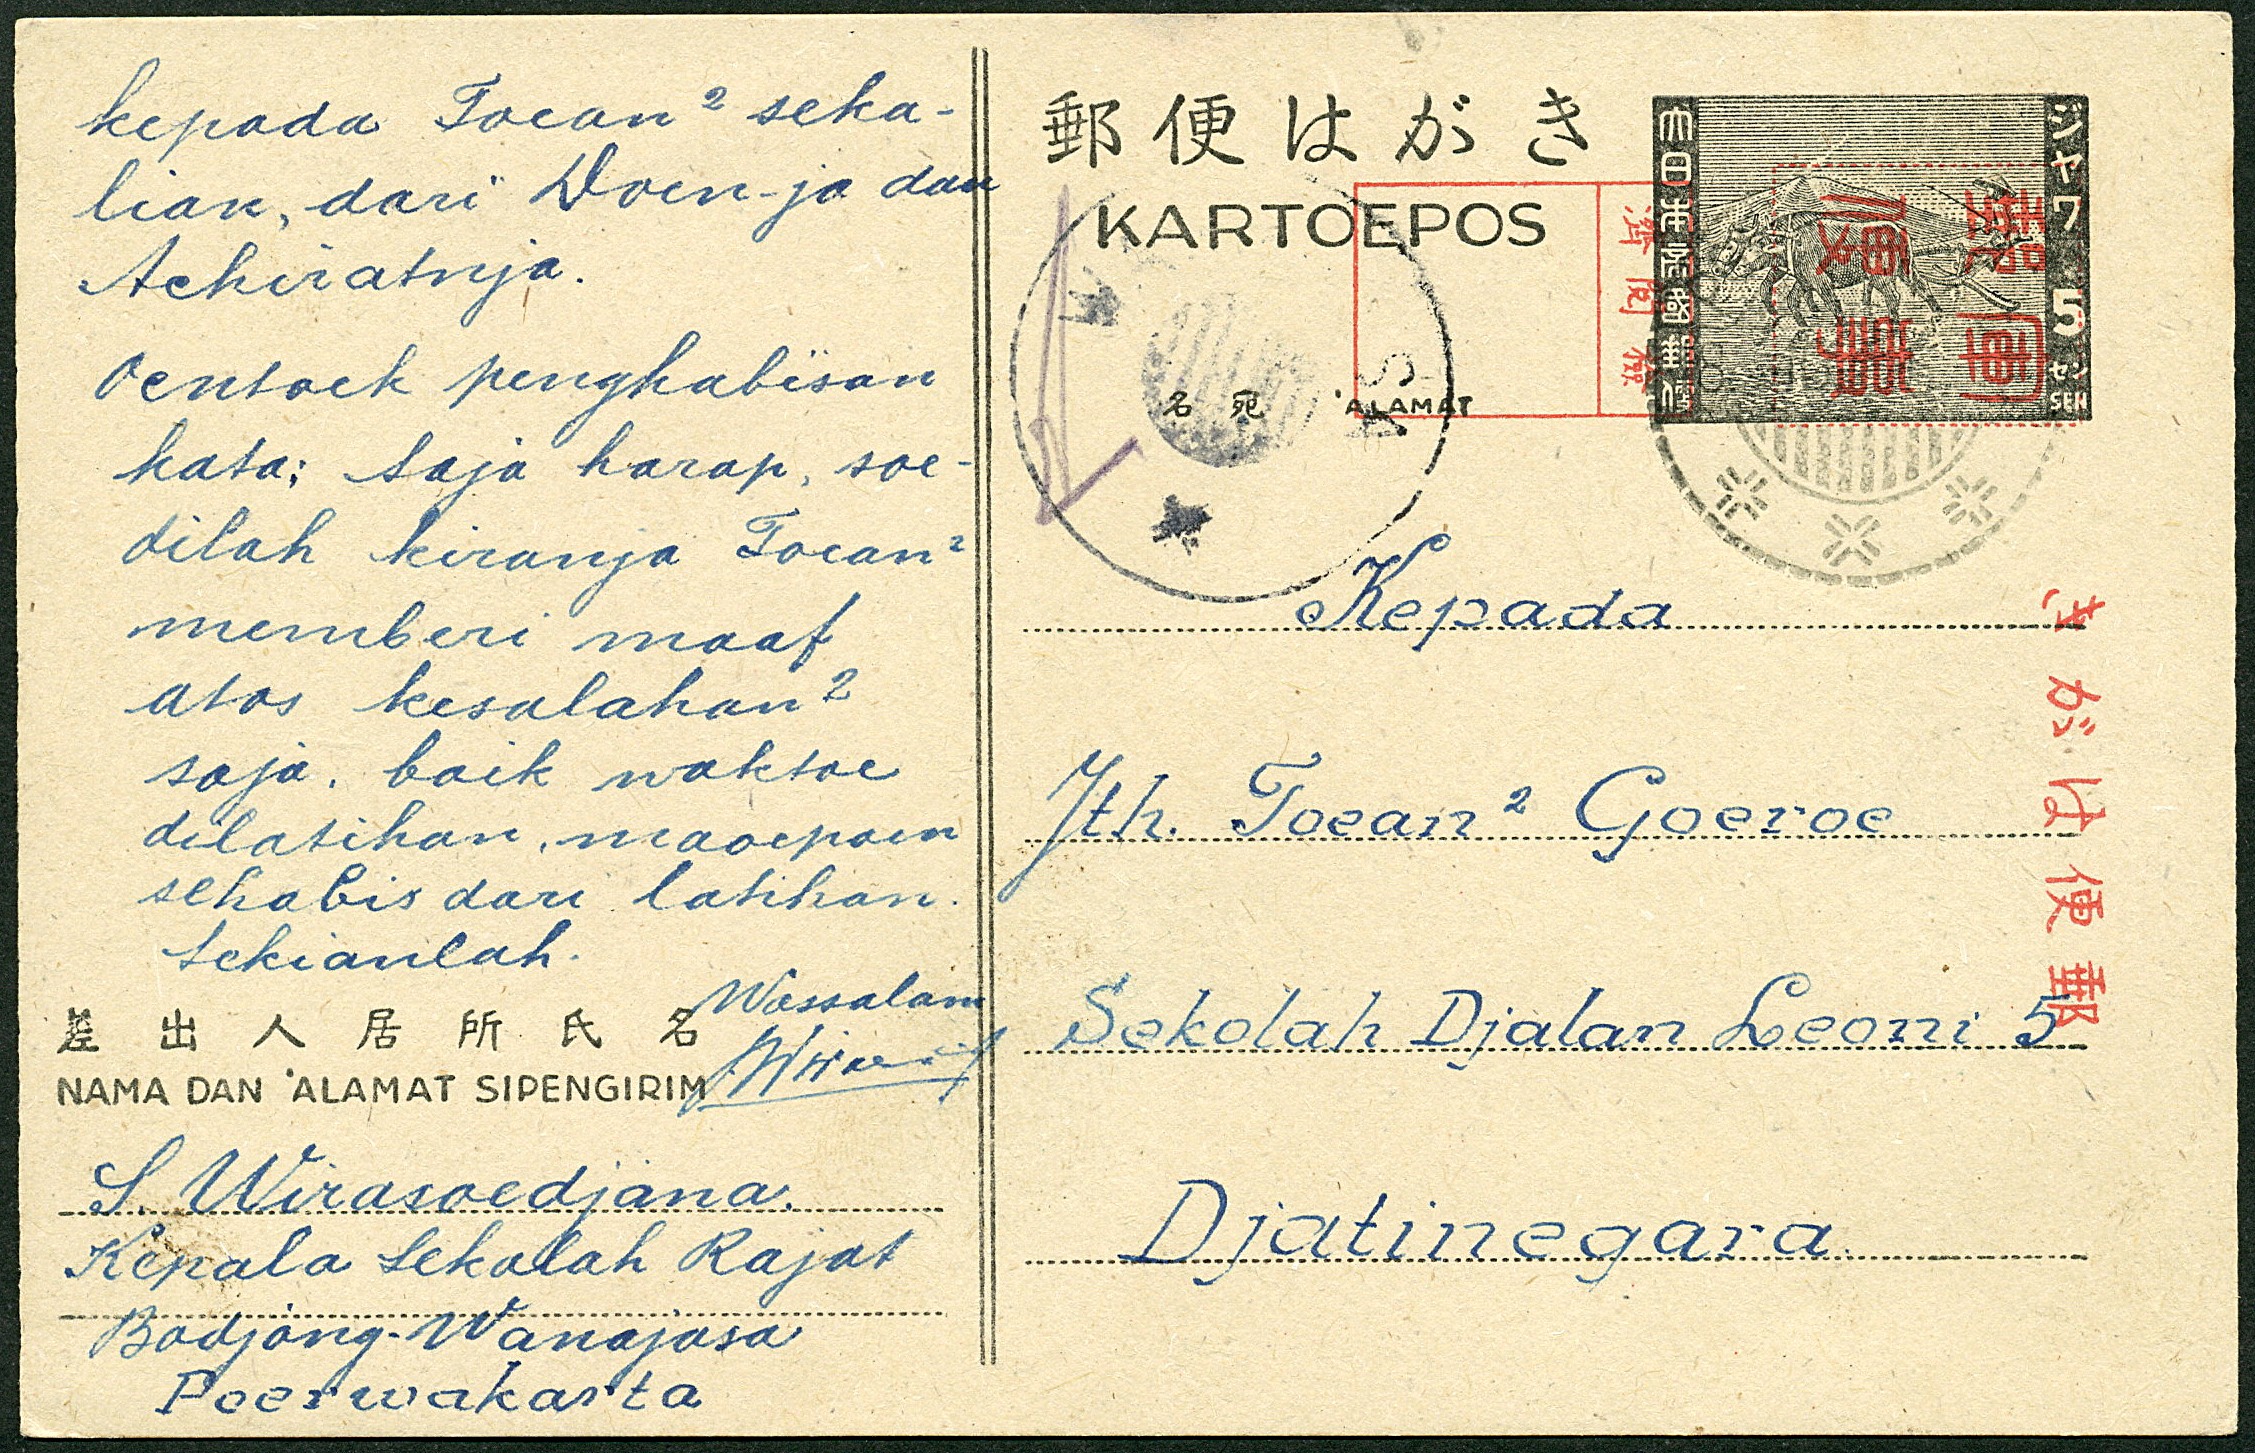 kepada Toean² seka-
lian, dari Doen-ja dan
Achiratnja.
Oentoek penghabisan
kata; saja harap, soe-
dilah kiranja Toean²
memberi maaf
atas kesalahan²
saja, baik waktoe
dilatihan, maoepoen
sehabis dari latihan.
Sekianlah.
Wassalam
差出人居所氏名
NAMA DAN 'ALAMAT SIPENGIRIM
S. Wirasoedjana.
Kepala Sekolah Rajat
Bodjong-Wanajasa
Poerwakarta
郵便はがき
KARTOEPOS
大日本帝國郵便
ジャワ
5
セン
SEN
名宛
'ALAMAT
Kepada
Jth. Toean² Goeroe
Sekolah Djalan Leoni 5
Djatinegara.
郵便はがき